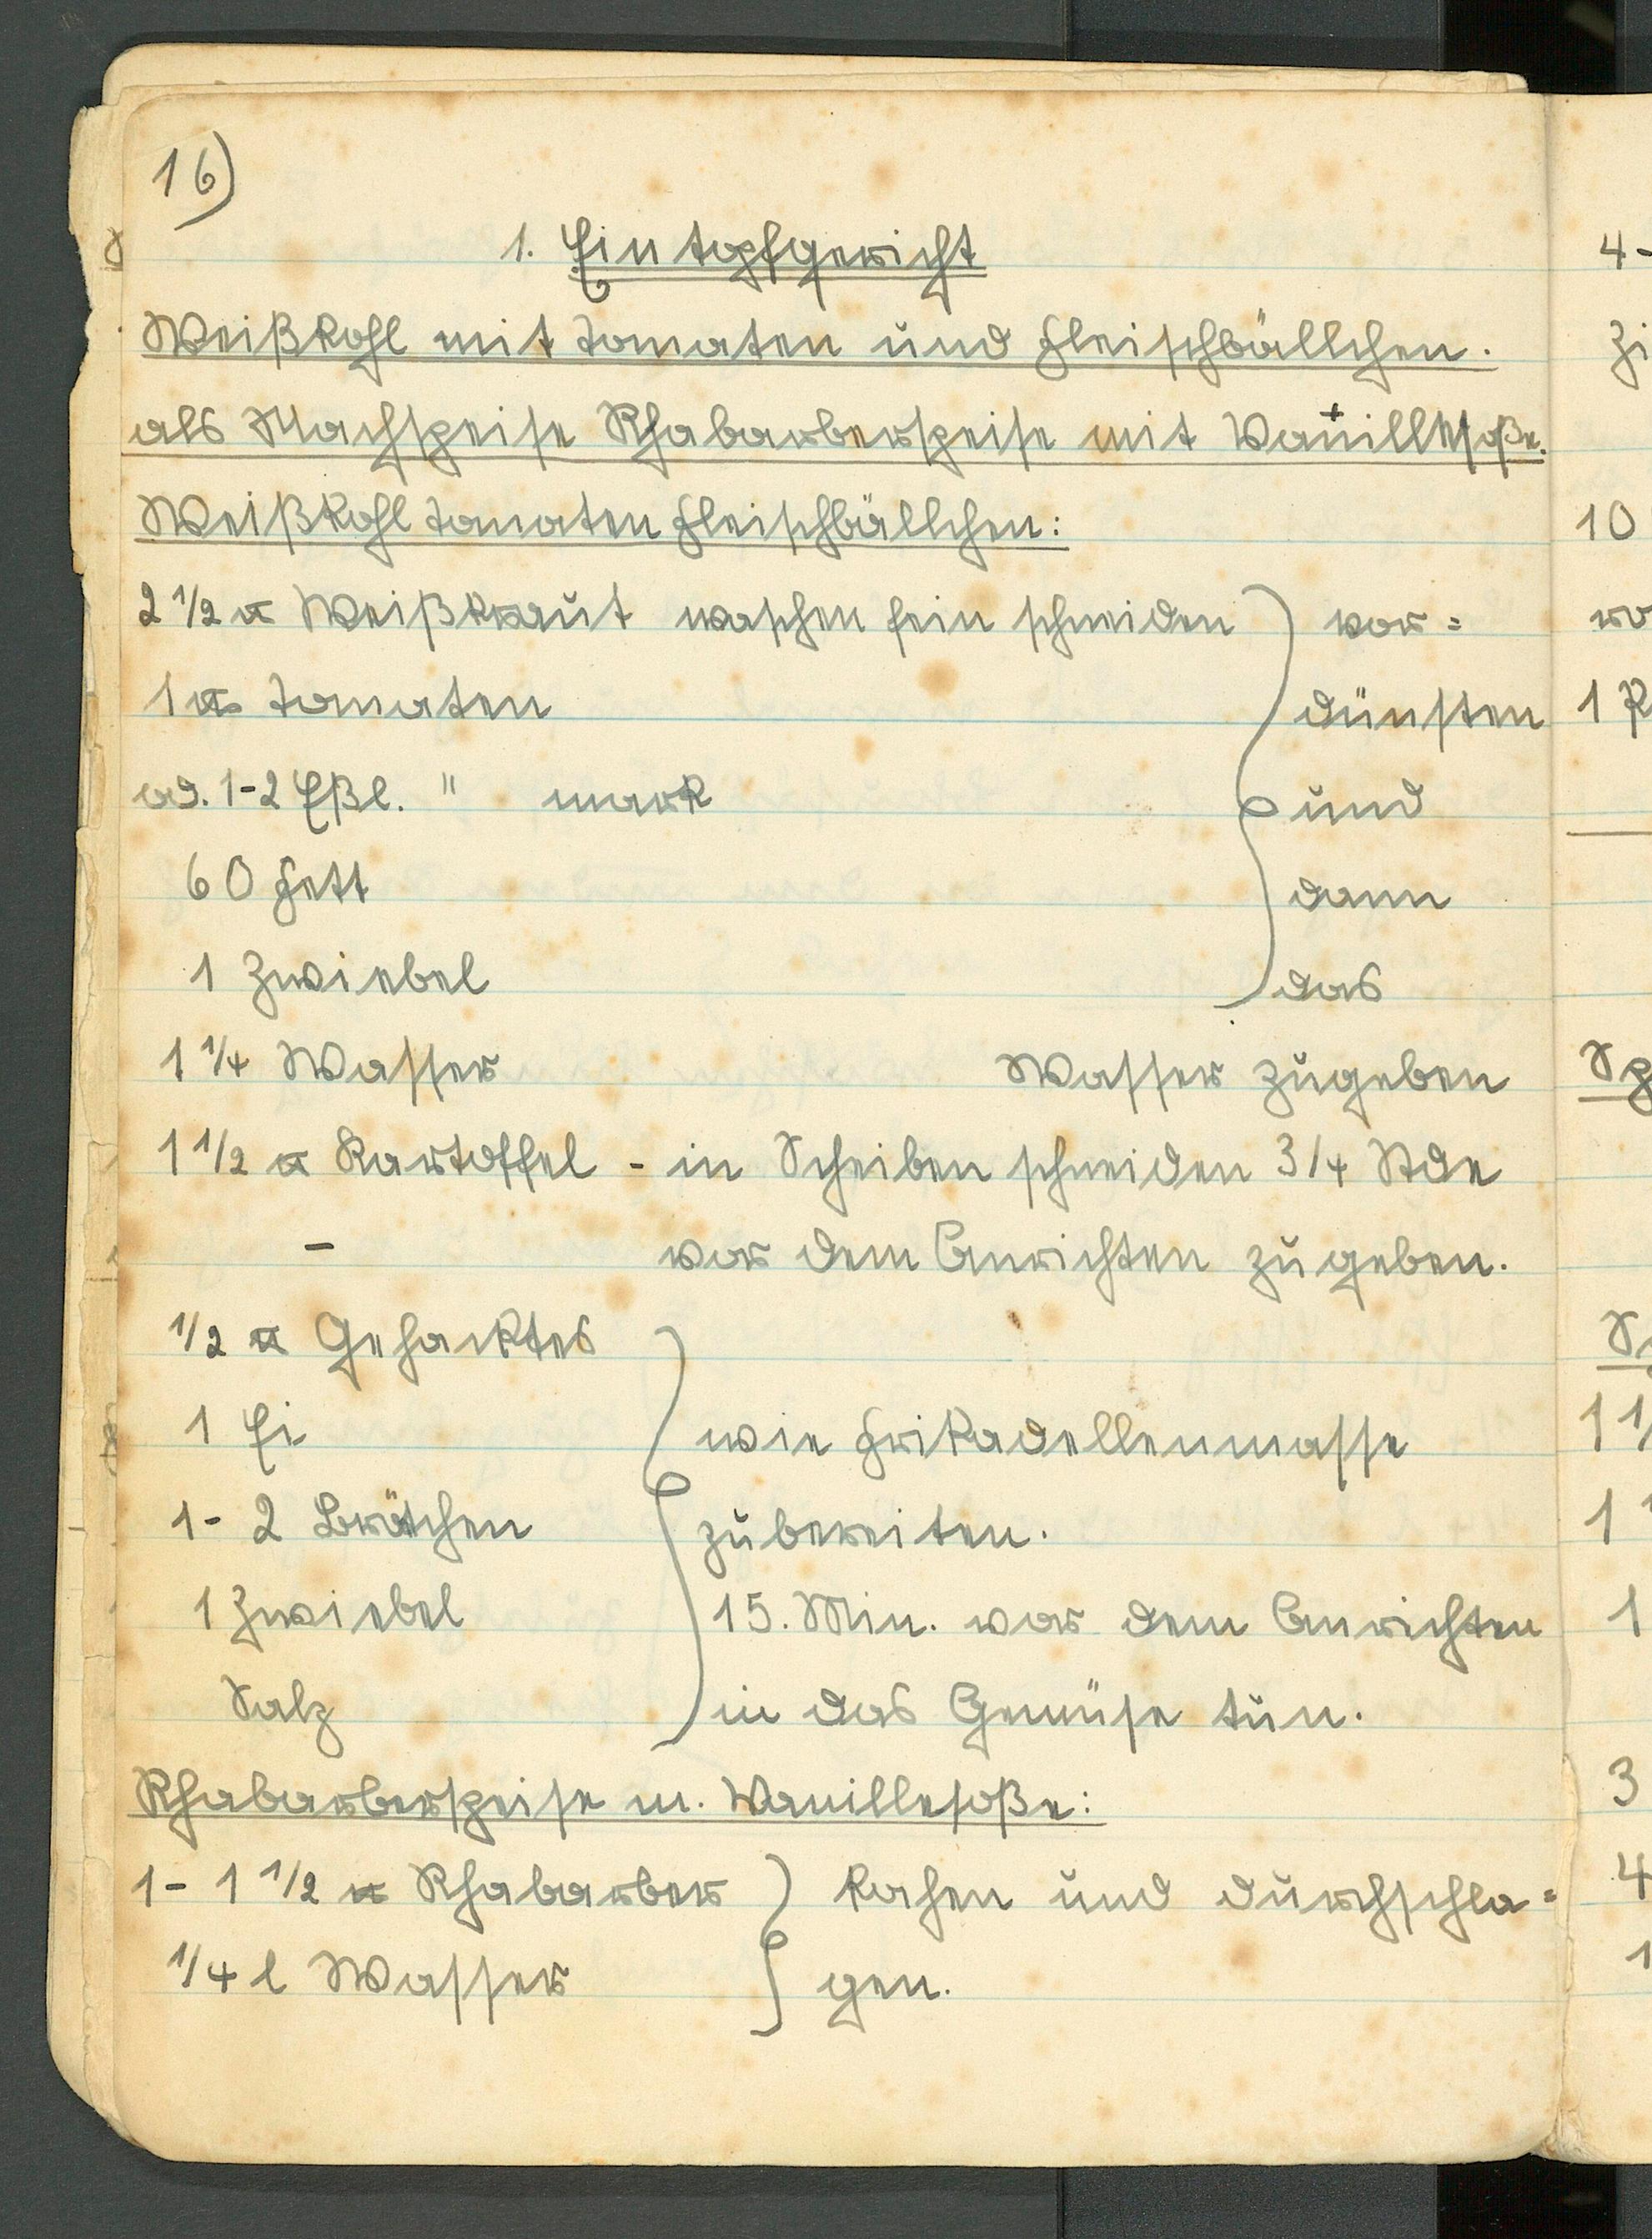 16)
1. Eintopfgericht
Weißkohl mit Tomaten und Fleischbällchen.
als Nachspeise Rhabarberspeise mit Vanillesoße.
Weißkohl Tomaten Fleischbällchen:
2 1/2 ℔ Weißkraut waschen fein schneiden vor=
1 ℔ Tomaten dünsten
od. 1-2 Eßl. " mark und
60 Fett dann
1 Zwiebel das
1 1/4 Wasser Wasser zugeben
1 1/2 ℔ Kartoffel - in Scheiben schneiden 3/4 Stde
- vor dem Anrichten zugeben.
1/2 ℔ Gehacktes
1 Ei wie Frikadellenmasse
1-2 Brötchen zubereiten.
1 Zwiebel 15. Min. vor dem Anrichten
Salz in das Gemüse tun.
Rhabarberspeise m. Vanillesoße:
1- 1 1/2 ℔ Rhabarber kochen und durchschla=
1/4 l Wasser gen.
4-
10
3
4
1